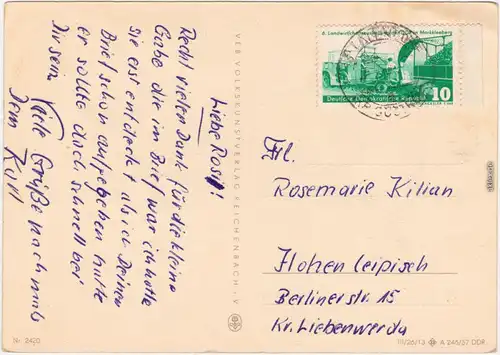 Liebe Rosi!
Recht vielen Dank für die kleine
Gabe die im Brief war ich hatte
sie erst entdeckt als ich Deinen
Brief schon aufgegeben hatte
er sollte doch schnell bei
Dir sein
Viele Grüße nochmals
Dein Karl
VEB VOLKSKUNSTVERLAG REICHENBACH · V.
Deutsche Demokratische Republik
10
Frl.
Rosemarie Kilian
Hohenleipisch
Berlinerstr. 15
Kr. Liebenwerda
Nr. 2420
III/26/13 A 245/57 DDR